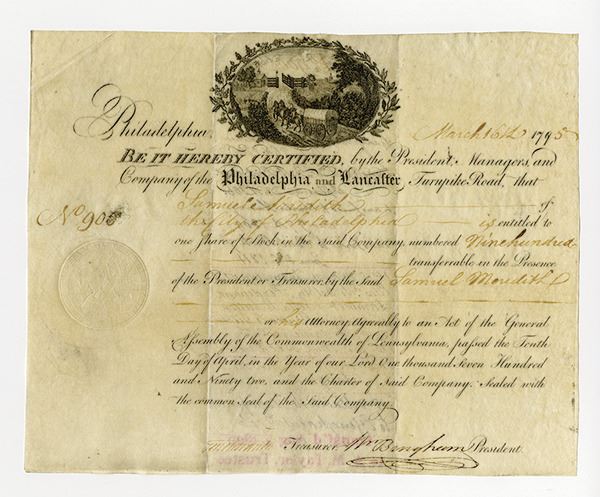 Philadelphia March 16th 1795
BE IT HEREBY CERTIFIED, by the President, Managers, and
Company of the Philadelphia and Lancaster Turnpike Road, that
Samuel Meredith of
No 905
the City of Philadelphia is entitled to
one Share of Stock, in the said Company, numbered Ninehundred
transferrable in the Presence
of the President or Treasurer, by the Said Samuel Meredith
or his Attorney, Agreeably to an Act of the General
Assembly of the Commonwealth of Pennsylvania, passed the Tenth
Day of April, in the Year of our Lord One thousand Seven Hundred
and Ninety two, and the Charter of Said Company. Sealed with
the common Seal of the Said Company.
Treasurer. Wm Bingham President.